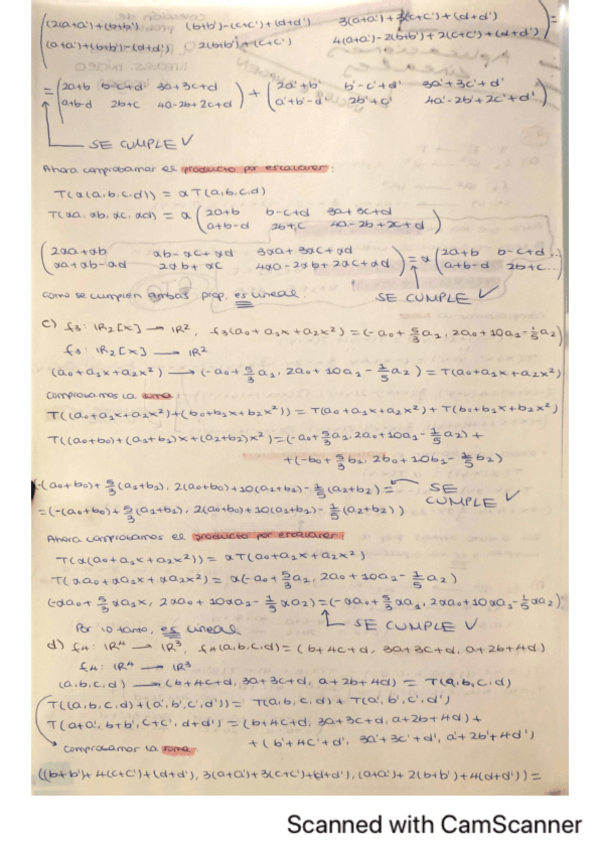 (2(a+a')+(b+b') (b+b')-(c+c')+(d+d') 3(a+a')+3(c+c')+(d+d')
(a+a')+(b+b')-(d+d') 2(b+b')+(c+c') 4(a+a')-2(b+b')+2(c+c')+(d+d')) =
= (2a+b b-c+d 3a+3c+d
a+b-d 2b+c 4a-2b+2c+d) + (2a'+b' b'-c'+d' 3a'+3c'+d'
a'+b'-d' 2b'+c' 4a'-2b'+2c'+d')
SE CUMPLE ✓
Ahora comprobamos el producto por escalares:
T(α(a,b,c,d)) = αT(a,b,c,d)
T(αa, αb, αc, αd) = α (2a+b b-c+d 3a+3c+d
a+b-d 2b+c 4a-2b+2c+d)
(2αa+αb αb-αc+αd 3αa+3αc+αd
αa+αb-αd 2αb+αc 4αa-2αb+2αc+αd) = α (2a+b b-c+d...
a+b-d 2b+c...)
Como se cumplen ambas prop. es lineal. SE CUMPLE ✓
c) f₃: IR₂[x] → IR², f₃(a₀+a₁x+a₂x²) = (-a₀+5/3a₁, 2a₀+10a₁-1/5a₂)
f₃: IR₂[x] → IR²
(a₀+a₁x+a₂x²) → (-a₀+5/3a₁, 2a₀+10a₁-1/5a₂) = T(a₀+a₁x+a₂x²)
Comprobamos la suma:
T((a₀+a₁x+a₂x²)+(b₀+b₁x+b₂x²)) = T(a₀+a₁x+a₂x²)+T(b₀+b₁x+b₂x²)
T((a₀+b₀)+(a₁+b₁)x+(a₂+b₂)x²) = (-a₀+5/3a₁, 2a₀+10a₁-1/5a₂)+
+(-b₀+5/3b₁, 2b₀+10b₁-1/5b₂)
(-(a₀+b₀)+5/3(a₁+b₁), 2(a₀+b₀)+10(a₁+b₁)-1/5(a₂+b₂)= SE CUMPLE ✓
=(-(a₀+b₀)+5/3(a₁+b₁), 2(a₀+b₀)+10(a₁+b₁)-1/5(a₂+b₂))
Ahora comprobamos el producto por escalares:
T(α(a₀+a₁x+a₂x²)) = αT(a₀+a₁x+a₂x²)
T(αa₀+αa₁x+αa₂x²) = α(-a₀+5/3a₁, 2a₀+10a₁-1/5a₂)
(-αa₀+5/3αa₁x, 2αa₀+10αa₁-1/5αa₂) = (-αa₀+5/3αa₁, 2αa₀+10αa₁-1/5αa₂)
Por lo tanto, es lineal SE CUMPLE ✓
d) f₄: IR⁴ → IR³, f₄(a,b,c,d) = (b+4c+d, 3a+3c+d, a+2b+4d)
f₄: IR⁴ → IR³
(a,b,c,d) → (b+4c+d, 3a+3c+d, a+2b+4d) = T(a,b,c,d)
T((a,b,c,d)+(a',b',c',d')) = T(a,b,c,d)+T(a',b',c',d')
T(a+a', b+b', c+c', d+d') = (b+4c+d, 3a+3c+d, a+2b+4d)+
+(b'+4c'+d', 3a'+3c'+d', a'+2b'+4d')
comprobamos la suma.
((b+b')+4(c+c')+(d+d'), 3(a+a')+3(c+c')+(d+d'), (a+a')+2(b+b')+4(d+d')) =
Scanned with CamScanner